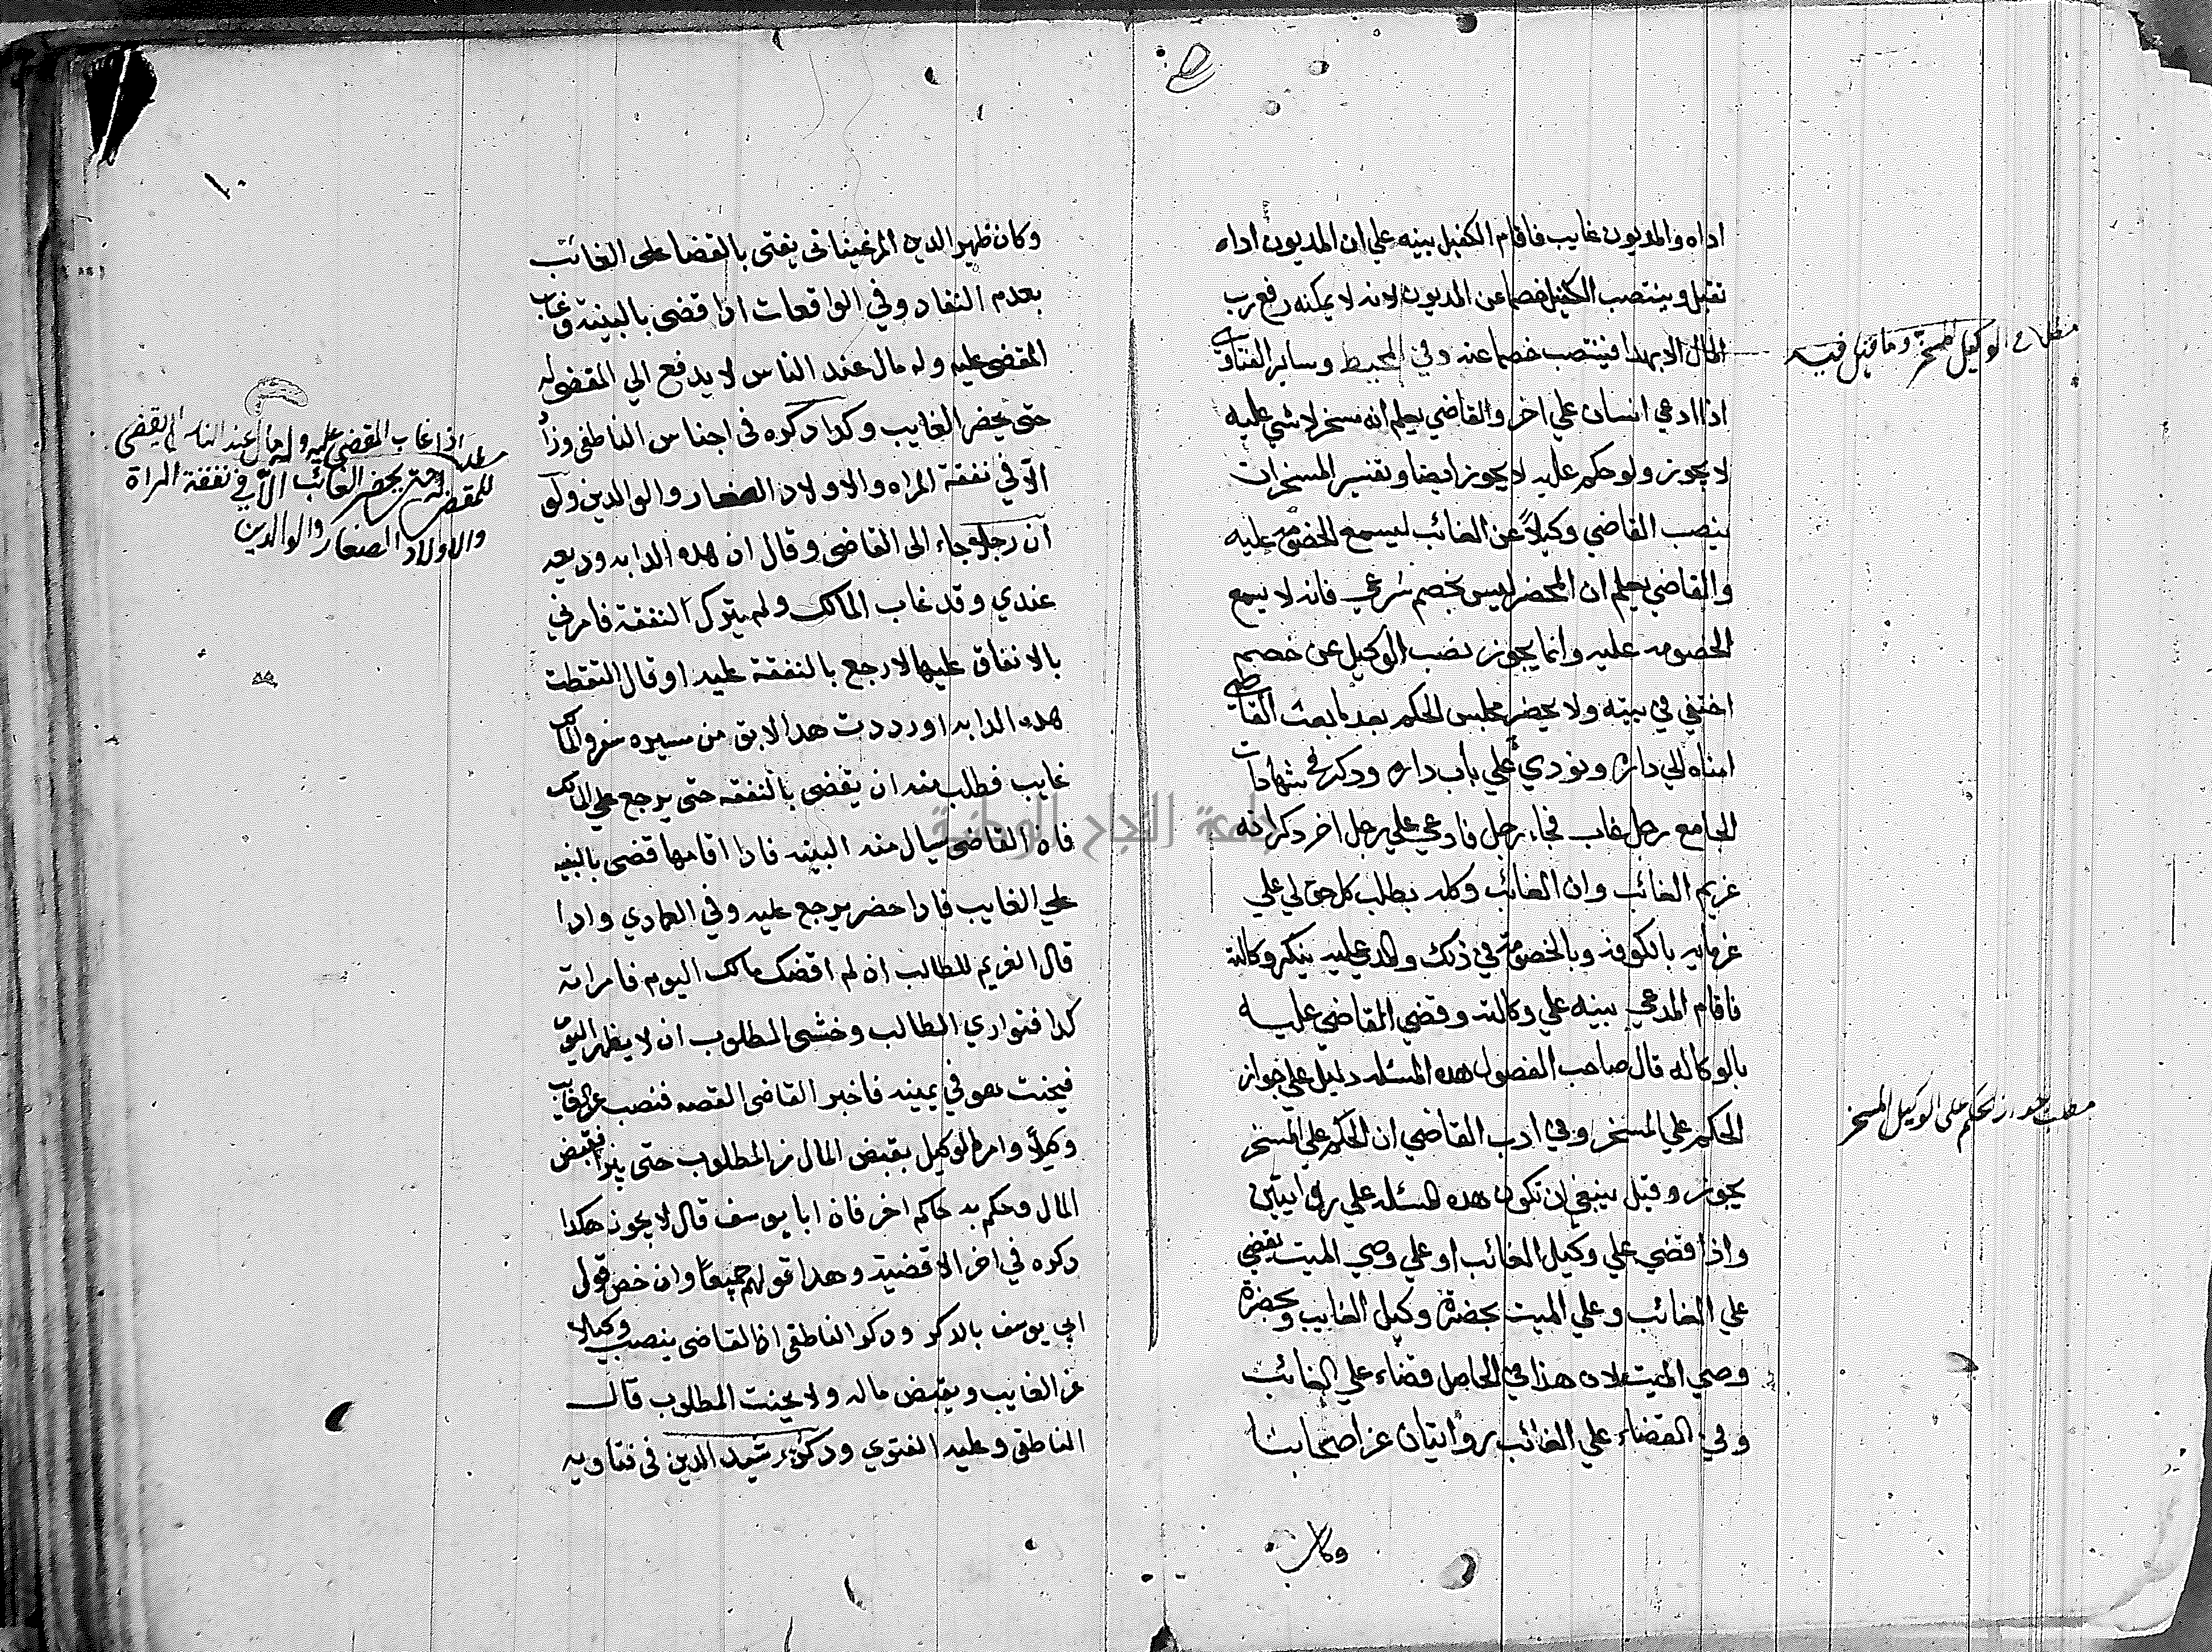 اداه والمديون غايب فاقام الكفيل بينه علي ان المديون اداه
تقبل وينتصب الكفيل خصما عن المديون لانه لا يمكنه رفع رب
المال الا بهدا فينتصب خصما عنه وفي المحيط وساير الفتاوى
مطلب في الوكيل المسخر وما قيل فيه
اذا ادعي انسان علي اخر والقاضي يعلم انه مسخر لا شي عليه
لا يجوز ولو حكم عليه لا يجوز ايضا وتفسير المسخر ان
ينصب القاضي وكيلاً عن الغائب ليسمع الخصومة عليه
والقاضي يعلم ان المحضر ليس بخصم شرعي فانه لا يسمع
الخصومه عليه وانما يجوز نصب الوكيل عن خصم
اختفي في بيته ولا يحضر مجلس الحكم بعد ما بعث القاضي
امناه الي داره ونودي علي باب داره ودكر في شهادات
الجامع رجل غاب فجاء رجل فادعي علي رجل اخر دكر انه
غريم الغائب وان الغائب وكله بطلب كل حق لي علي
غرمايه بالكوفه وبالخصومة في ذلك والمدعي عليه ينكر وكالته
فاقام المدعي بينه علي وكالته وقضي القاضي عليه
بالوكاله قال صاحب الفصول هده المسئله دليل علي جواز
الحكم علي المسخر وفي ادب القاضي ان الحكم علي المسخر
مطلب جواز الحكم على الوكيل المسخر
يجوز وقيل ينبغي ان تكون هده المسئله علي روايتين
واذا قضي علي وكيل الغائب او علي وصي الميت يقضي
علي الغائب وعلي الميت بحضرة وكيل الغايب وبحضرة
وصي الميت لان هذا في الحاصل قضاء علي الغائب
وفي القضاء علي الغائب روايتان عن اصحابنا
وكان
١٠
وكان ظهير الدين المرغيناني يفتى بالقضا على الغائب
بعدم النفاد وفي الواقعات اذا قضى بالبينة وغاب
المقضى عليه وله مال عند الناس لا يدفع الي المقضى له
حتى يحضر الغايب وكدا دكره فى اجناس الناطفى وزاد
اذا غاب المقضى عليه وله مال عند الناس لا يقضى
مطلب للمقضى له حتى يحضر الغائب الا في نفقة المراة
والاولاد الصغار والوالدين
الا في نفقة المراه والاولاد الصغار والوالدين ولو
ان رجلا جاء الى القاضى وقال ان هده الدابه وديعه
عندي وقد غاب المالك ولم يترك النفقة فامرني
بالانفاق عليها لارجع بالنفقة عليه او قال التقطت
هده الدابه او رددت هدا الابق من مسيره سفر والمالك
غايب فطلب منه ان يقضى بالنفقه حتى يرجع علي المالك
فان القاضى يسال منه البينه فادا اقامها قضى بالنفقه
علي الغايب فادا حضر يرجع عليه وفي العمادي وادا
قال الغريم للطالب ان لم اقضك مالك اليوم فامراته
كدا فتواري الطالب وخشى المطلوب ان لا يظهر اليوم
فيحنث هو في يمينه فاخبر القاضى القصه فنصب عن الغايب
وكيلاً وامر الوكيل بقبض المال من المطلوب حتى يبرا فقبض
المال وحكم به حاكم اخر فان ابا يوسف قال لا يجوز هكدا
دكره في اخر الاقضية وهدا قولهم جميعاً وان خص قول
ابي يوسف بالدكر ودكر الناطفى ان القاضى ينصب وكيلا
عن الغايب ويقبض ماله ولا يحنث المطلوب قال
الناطفى وعليه الفتوي ودكر رشيد الدين فى فتاويه
جامعة النجاح الوطنية